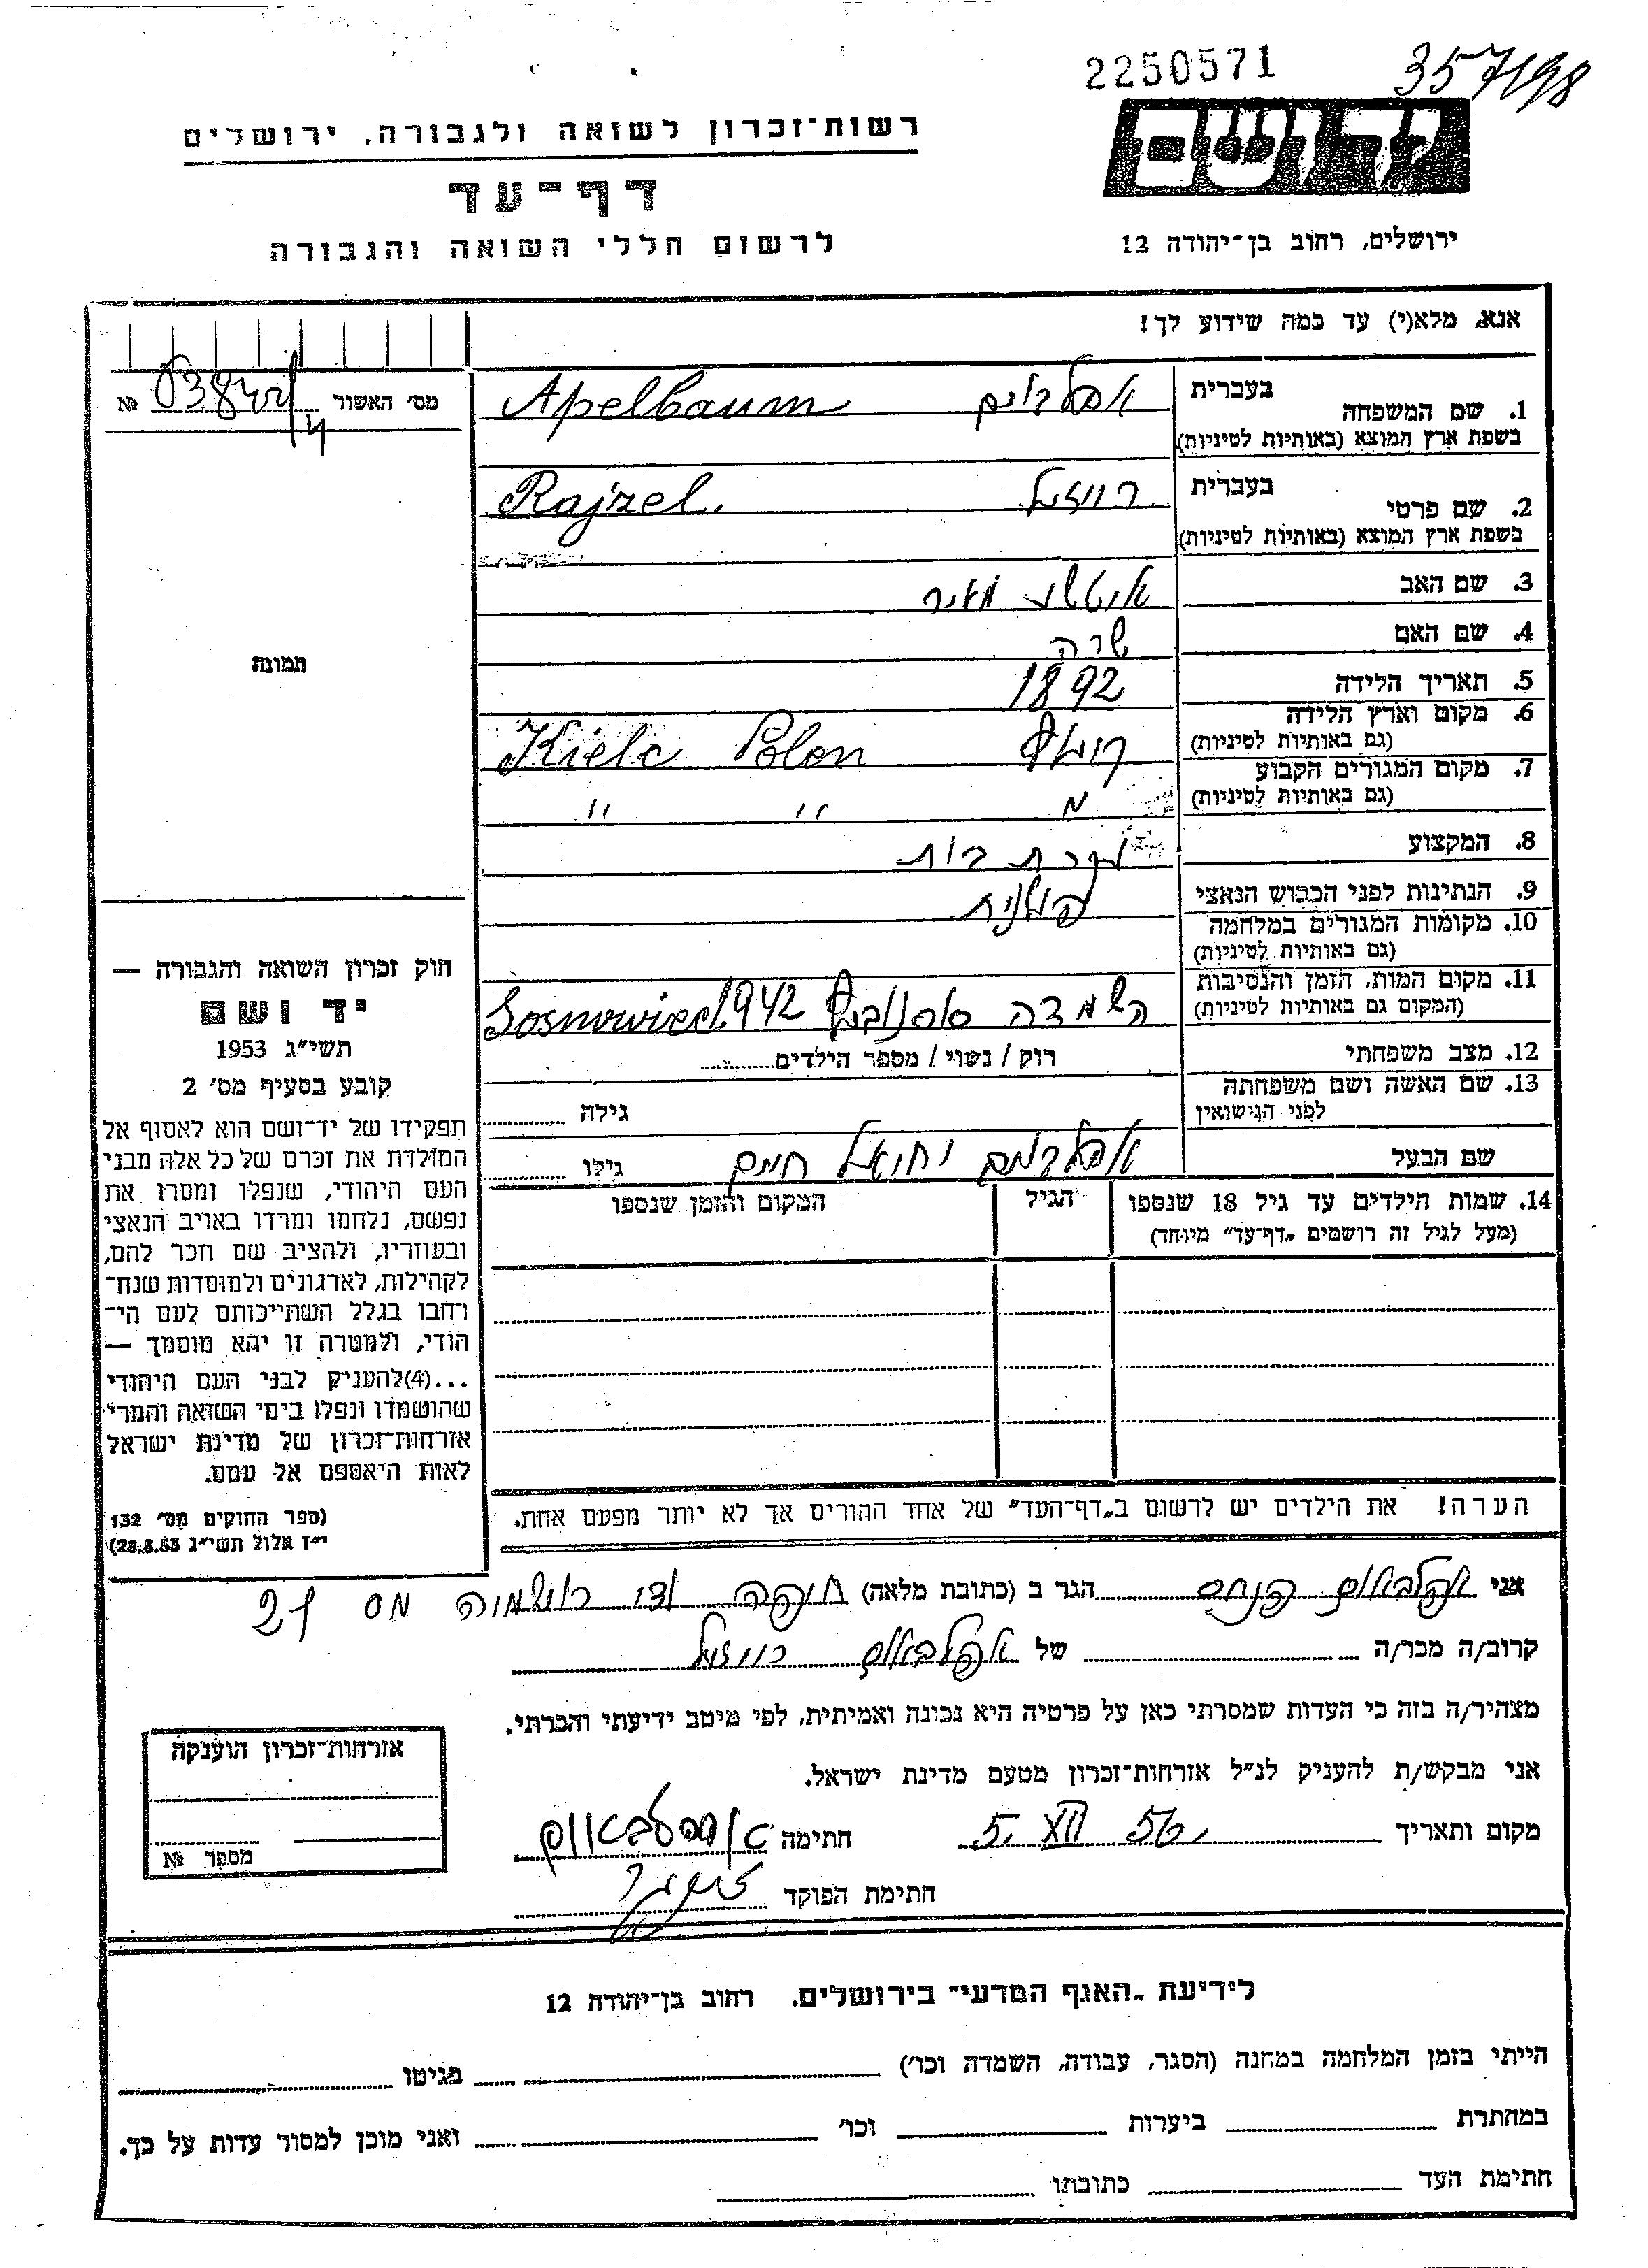 2250571
357/98
רשות־זכרון לשואה ולגבורה, ירושלים
דף־עד
לרשום חללי השואה והגבורה
ירושלים, רחוב בן־יהודה 12
אנא, מלא(י) עד כמה שידוע לך!
מס׳ האשור №
1. שם המשפחה בעברית אפלבוים Apelbaum
בשפת ארץ המוצא (באותיות לטיניות)
2. שם פרטי בעברית רייזעל Rajzel.
בשפת ארץ המוצא (באותיות לטיניות)
3. שם האב איטשע מאיר
4. שם האם שרה
5. תאריך הלידה 1892
6. מקום וארץ הלידה Kielc Polen
(גם באותיות לטיניות)
7. מקום המגורים הקבוע " "
(גם באותיות לטיניות)
8. המקצוע עקרת בית
9. הנתינות לפני הכבוש הנאצי פולנית
10. מקומות המגורים במלחמה
(גם באותיות לטיניות)
11. מקום המות, הזמן והנסיבות השמדה סוסנוביץ 1942 Sosnowiec
(המקום גם באותיות לטיניות)
12. מצב משפחתי רוק / נשוי / מספר הילדים
13. שם האשה ושם משפחתה
לפני הנישואין גילה
שם הבעל אפלבוים יחיאל חיים גילו
14. שמות הילדים עד גיל 18 שנספו הגיל המקום והזמן שנספו
(מעל לגיל זה רושמים „דף־עד״ מיוחד)
הערה! את הילדים יש לרשום ב„דף־העד״ של אחד ההורים אך לא יותר מפעם אחת.
תמונה
חוק זכרון השואה והגבורה —
יד ושם
תשי״ג 1953
קובע בסעיף מס׳ 2
תפקידו של יד־ושם הוא לאסוף אל
המולדת את זכרם של כל אלה מבני
העם היהודי, שנפלו ומסרו את
נפשם, נלחמו ומרדו באויב הנאצי
ובעוזריו, ולהציב שם וזכר להם,
לקהילות, לארגונים ולמוסדות שנח־
רחבו בגלל השתייכותם לעם הי־
הודי, ולמטרה זו יהא מוסמך —
...(4)להעניק לבני העם היהודי
שהושמדו ונפלו בימי השואה והמרי
אזרחות־זכרון של מדינת ישראל
לאות היאספם אל עמם.
(ספר החוקים מס׳ 132
י״ז אלול תשי״ג 28.8.53)
אני אפלבאום פנחס הגר ב (כתובת מלאה) חיפה ואדי רושמיה מס 21
קרוב/ה מכר/ה של אפלבאום רייזעל
מצהיר/ה בזה כי העדות שמסרתי כאן על פרטיה היא נכונה ואמיתית, לפי מיטב ידיעתי והכרתי.
אני מבקש/ת להעניק לנ״ל אזרחות־זכרון מטעם מדינת ישראל.
מקום ותאריך 5. XII 56. חתימה אפפלבאום
חתימת הפוקד
אזרחות־זכרון הוענקה
מספר №
לידיעת „האגף המדעי״ בירושלים, רחוב בן־יהודה 12
הייתי בזמן המלחמה במחנה (הסגר, עבודה, השמדה וכו׳) בגיטו
במחתרת ביערות וכו׳ ואני מוכן למסור עדות על כך.
חתימת העד כתובתו